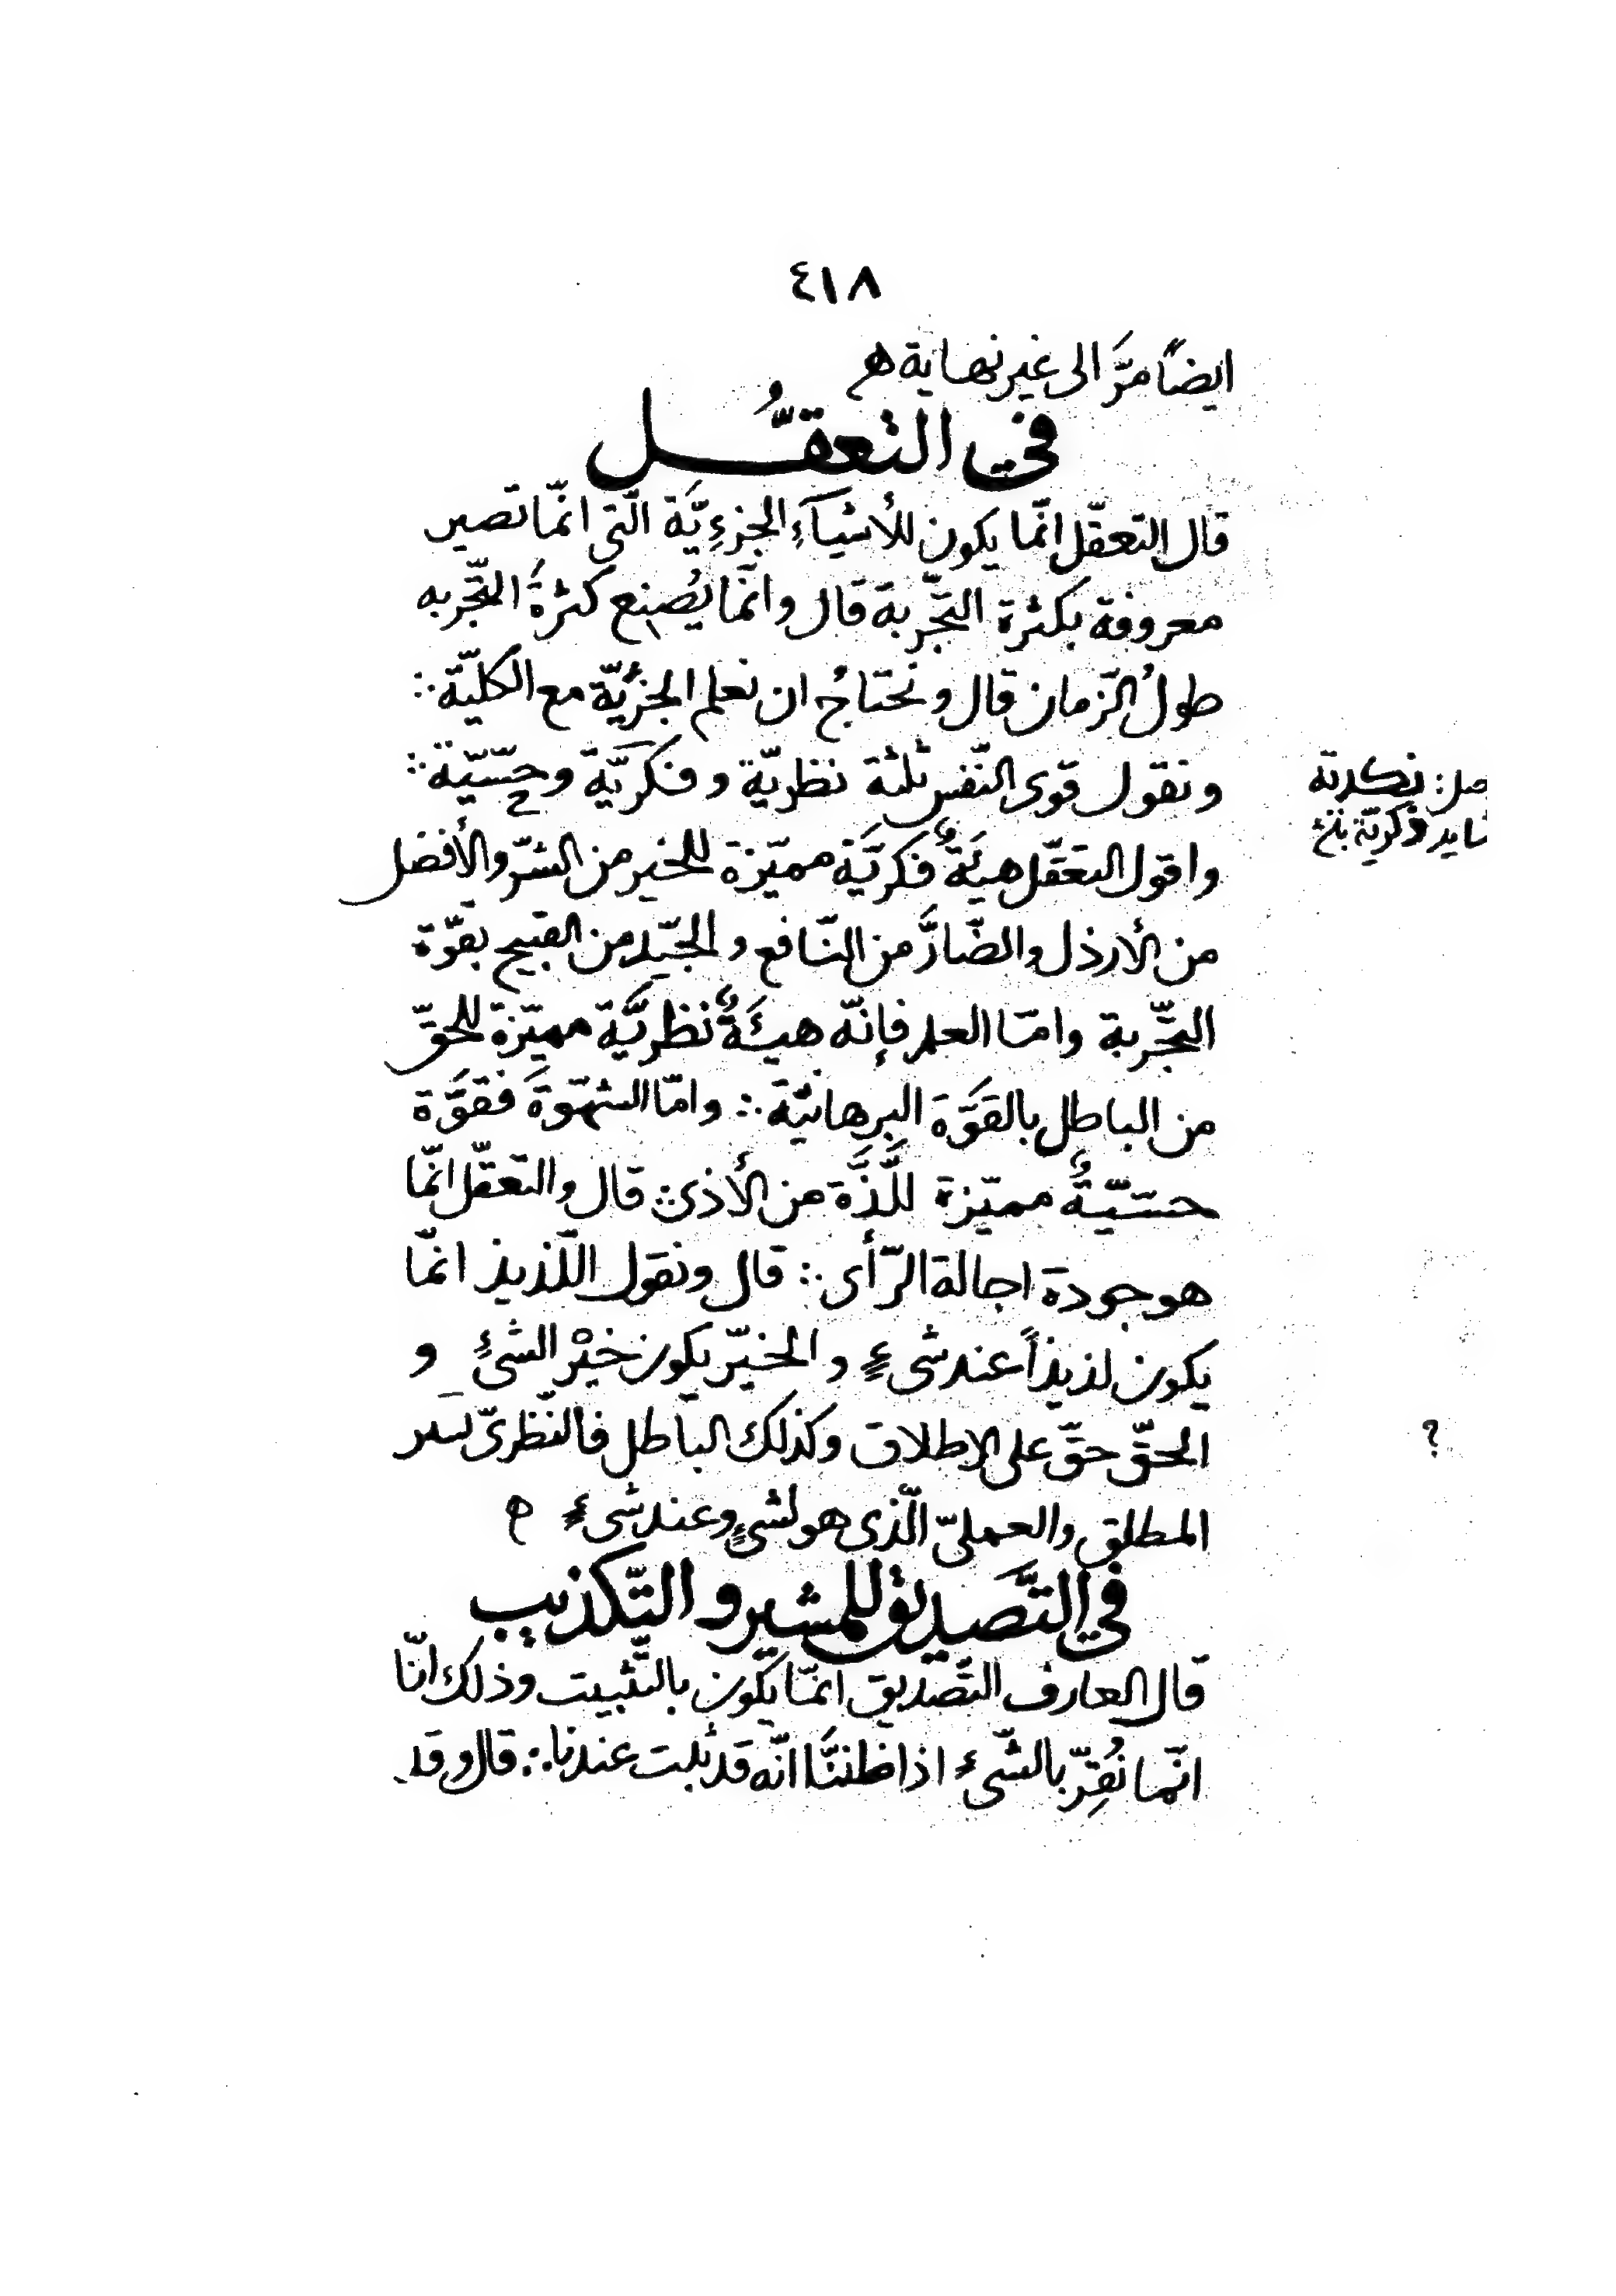 ٤١٨
ايضًا مرَّ الى غير نهاية ھ
في التعقُّل
قال التعقّل انّما يكون للأشيآءِ الجزءِيَّة الّتى انّما تصير
معروفة بكثرة التّجربة قال وانّما يُصنع كثرةُ التّجربه
طولُ الزّمان قال ونحتاجُ ان نعلم الجزئيّة مع الكليّة ؞
ونقول قوى النّفس ثلثة نظريّة وفكريَّة وحسّيّة ؞
واقول التعقّل هيئَةٌ فكريَّة مميّزة للخير من الشرّ والأفضل
من الأرذل والضّارَّ من النّافع والجيّد من القبيح بقوّة
التّجربة وامّا العلم فإنّه هيئَةٌ نظريَّة مميّزة للحقّ
من الباطل بالقوَّة البرهانيّة ؞ وامّا الشهوَة فقوَّة
حسّيّةٌ مميّزة للَّذَّة من الأذى ؞ قال والتعقّل انّما
هو جودة اجالة الرّأى ؞ قال ونقول اللّذيذ انّما
يكون لذيذاً عند شىءٍ والخيّر يكون خيْر الشئِ و
الحقّ حقّ على الاطلاق وكذلك الباطل فالنّظرىّ
المطلق والعملىّ الّذى هو لشئٍ وعند شىءٍ ه
في التَّصديق للمشير والتّكذيب
قال العارف التّصديق انّما يكون بالتّثبيت وذلك انّا
انّما نُقِرّ بالشّىءِ اذا ظننَّا انّه قد ثبت عندنا ؞ قال وقد
صل: نكدىة
شايد فكريّة
؟